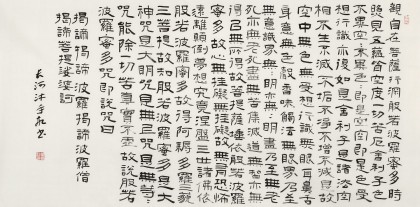 觀自在菩薩行深般若波羅蜜多時
照見五蘊皆空度一切苦厄舍利子色
不異空空不異色色即是空空即是色受
想行識亦復如是舍利子是諸法空
相不生不滅不垢不淨不增不減是故
空中無色無受想行識無眼耳鼻舌
身意無色聲香味觸法無眼界乃至
無意識界無無明亦無無明盡乃至無老
死亦無老死盡無苦集滅道無智亦無
得以無所得故菩提薩埵依般若波羅
蜜多故心無罣礙無罣礙故無有恐怖
遠離顛倒夢想究竟涅盤三世諸佛依
般若波羅蜜多故得阿耨多羅三藐
三菩提故知般若波羅蜜多是大
神咒是大明咒是無上咒是無等等
咒能除一切苦真實不虛故說般若
波羅蜜多咒即說咒曰
揭諦揭諦 波羅揭諦 波羅僧
揭諦菩提娑婆訶
長河沐手敬書